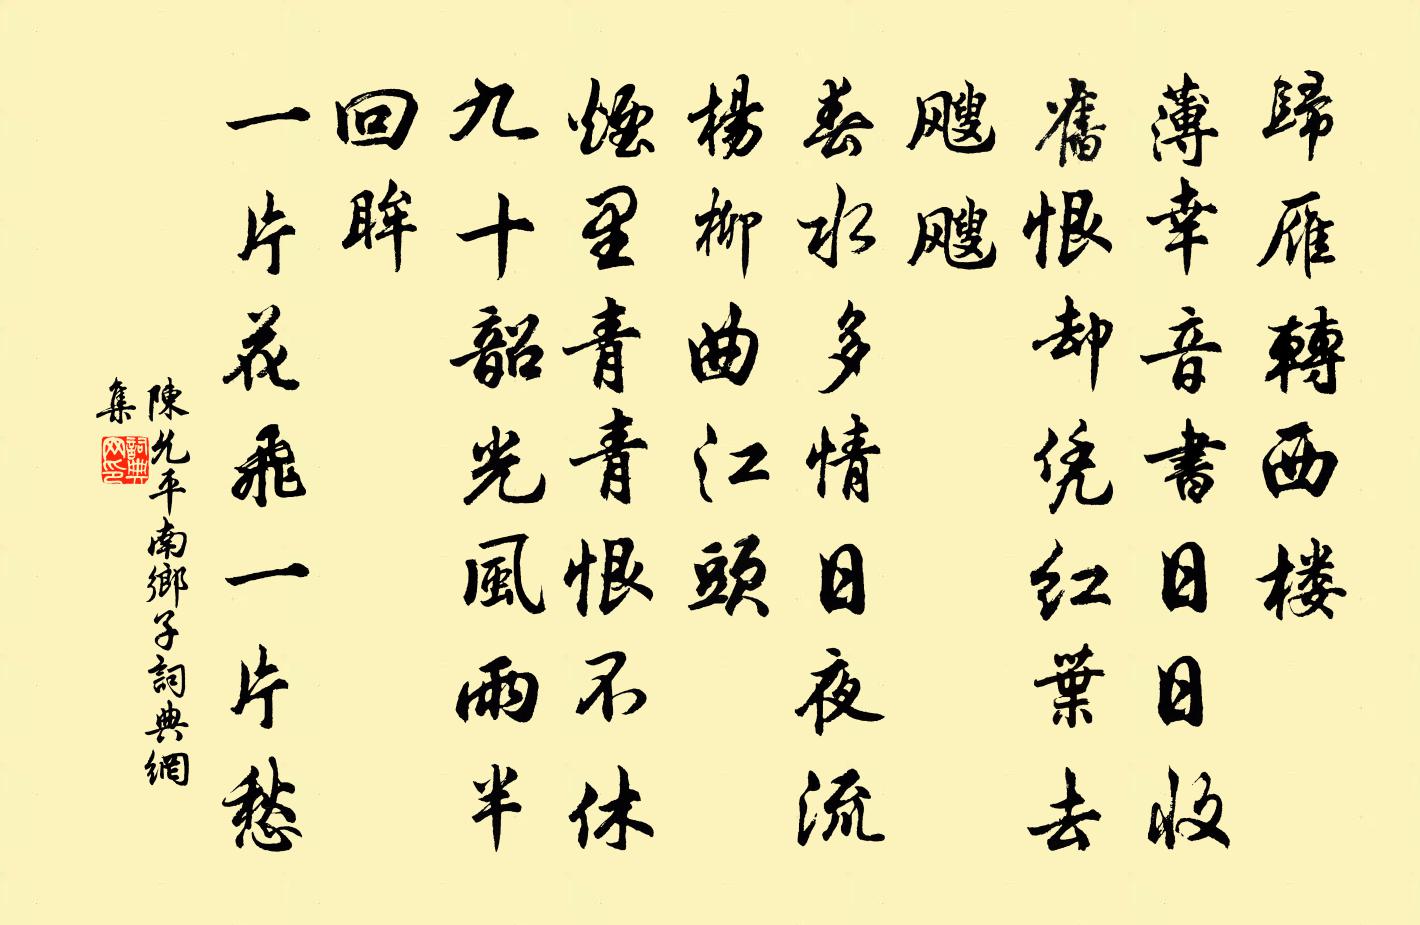 歸雁轉西楼
薄幸音書日日收
舊恨却凭红葉去
飕飕
春水多情日夜流
楊柳曲江頭
煙里青青恨不休
九十韶光風雨半
回眸
一片花飛一片愁
陳允平南鄉子詞典網
集
詞典网印